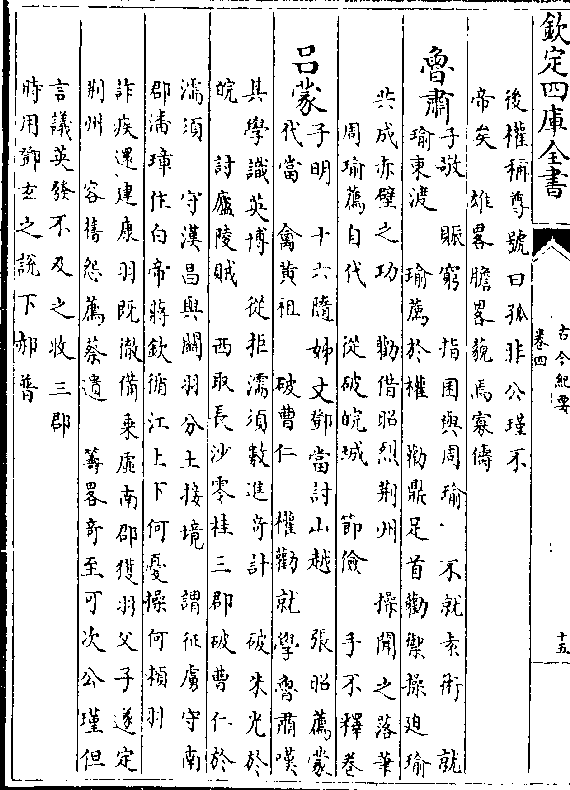 欽定四庫全書
古今紀要
卷四
十五
後權稱尊號曰孤非公瑾不
帝矣　雄畧膽畧貌馬寡儔
魯肅
子敬　賑窮　指囷與周瑜　不就袁術　就
瑜東渡　瑜薦於權　勸鼎足首勸禦操迎瑜
共成赤壁之功　勸借昭烈荆州　操聞之落筆
周瑜薦自代　從破皖城　節儉　手不釋卷
吕蒙
子明　十六隨姊丈鄧當討山越　張昭薦蒙
代當　禽黄祖　破曹仁　權勸就學魯肅嘆
其學識英博　從拒濡須數進奇計　破朱光於
皖　討廬陵賊　西取長沙零桂三郡破曹仁於
濡須　守漢昌與關羽分土接境　謂征虜守南
郡潘璋住白帝蔣欽循江上下何憂操何頼羽
詐疾還建康羽既徹備乗虚南郡獲羽父子遂定
荆州　容舊怨薦蔡遺　籌畧奇至可次公瑾但
言議英發不及之收三郡
時用鄧玄之説下郝普